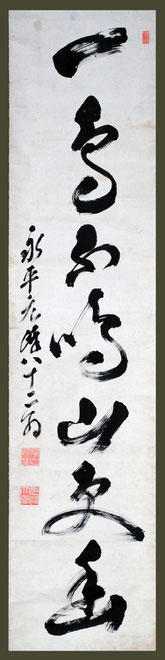 一鳥不鳴山更幽
永平元峰八十二翁